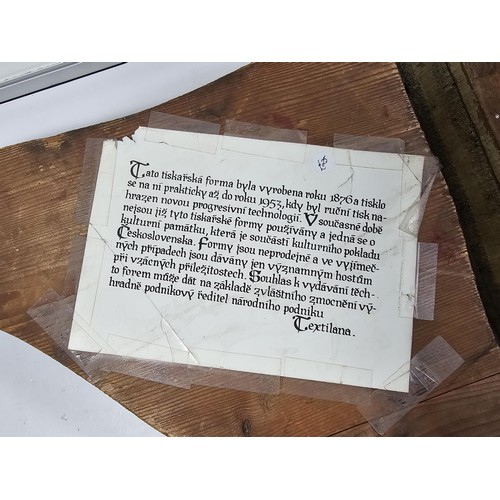 Tato tiskařská forma byla vyrobena roku 1876 a tisklo
se na ní prakticky až do roku 1953, kdy byl ruční tisk na-
hrazen novou progresivní technologií. V současné době
nejsou již tyto tiskařské formy používány a jedná se o
kulturní památku, která je součástí kulturního pokladu
Československa. Formy jsou neprodejné a ve vyjímeč-
ných případech jsou dávány jen významným hostům
při vzácných příležitostech. Souhlas k vydávání těch-
to forem může dát na základě zvláštního zmocnění vý-
hradně podnikový ředitel národního podniku
Textilana.